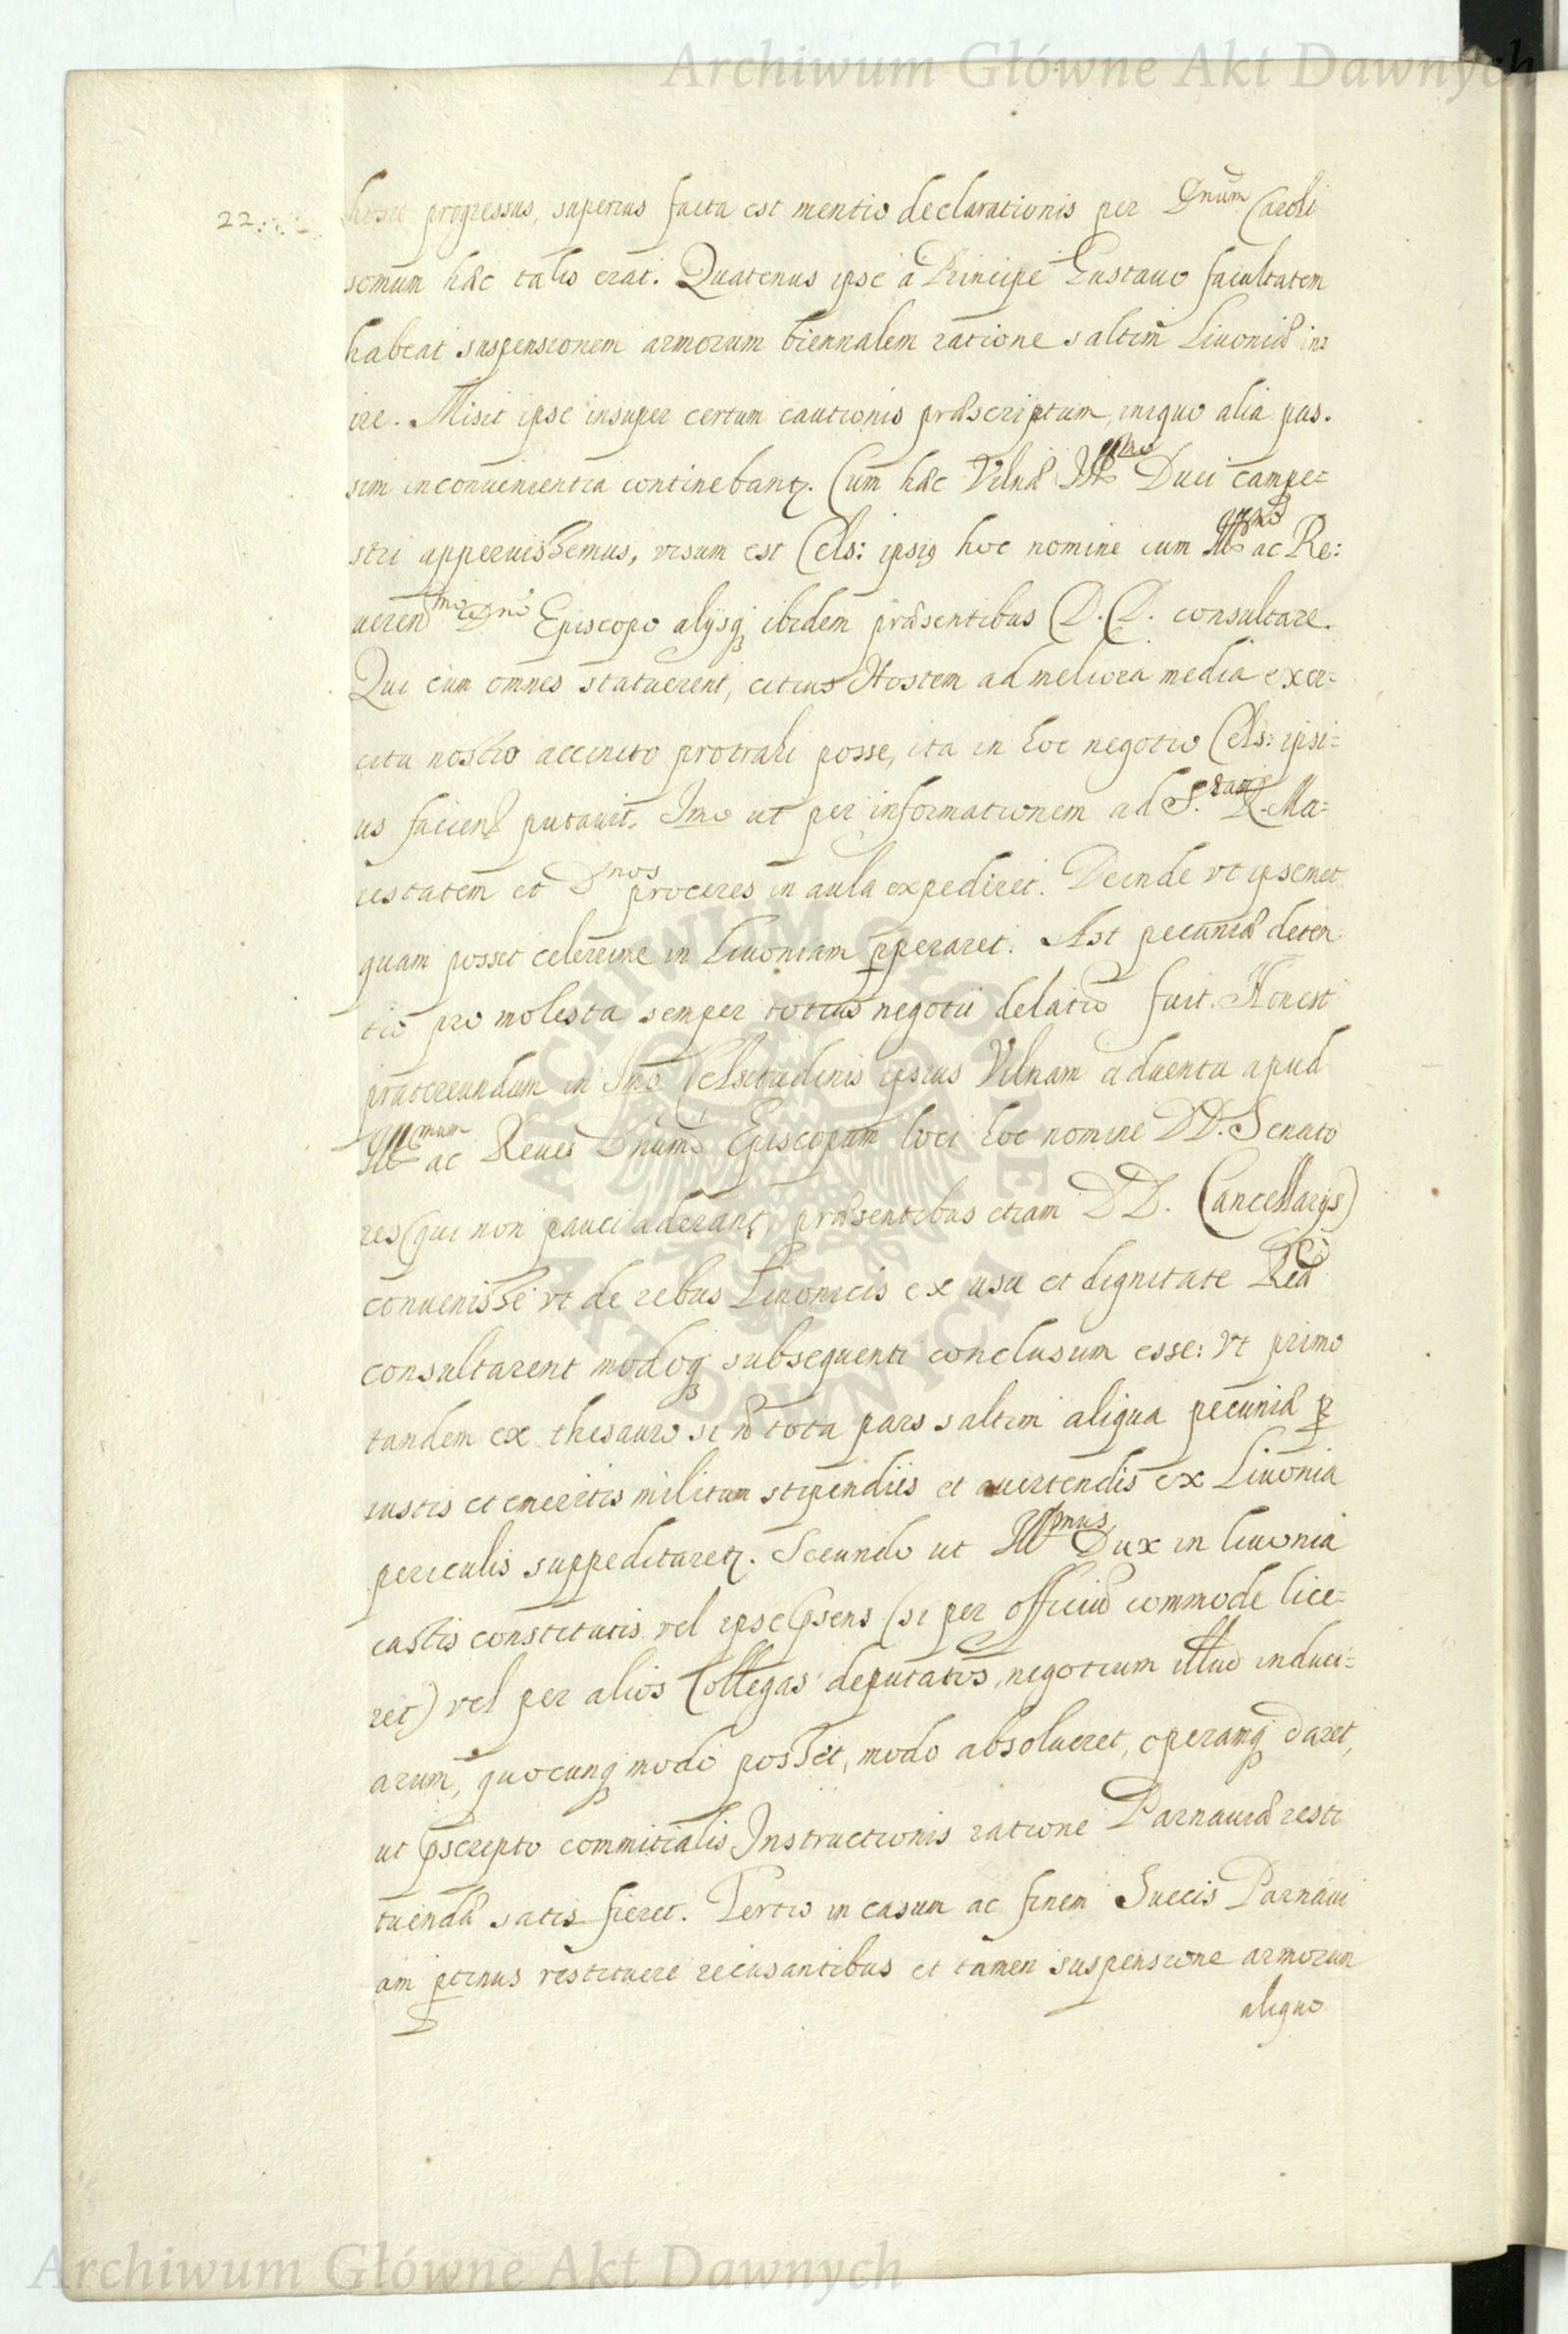 Archiwum Główne Akt Dawnych
22
progressus, superius facta est mentio declarationis per Dnum Caroli
somum hæc talis erat. Quatenus ipse a Principe Gustavo facultatem
habeat suspensionem armorum biennalem ratione saltim Livoniæ in:
ire. Misit ipse insuper certum cautionis præscriptum, inquo alia pas.
sim inconvenientia continebantz. Cum hæc Vilnæ Illmo Duci campe=
stri apperuissemus, visum est Cels: ipsiq hoc nomine cum Illmo ac Re:
ueren mo Dno Episcopo alijsq ibidem præsentibus D.D. consultare.
Qui cum omnes statuerent, citius Hostem ad meliora media exer=
citu nostro accincto protrahi posse, ita in hoc negotio Cels: ipsi=
us facien putavit. Imo ut per informationem ad S. R. Ma=
iestatem et Dnos proceres in aula expediret. Deinde vt ipsemet
quam posset celerrime in Livoniam pperaret. Ast pecuniæ deten
tio pro molesta semper totius negotii delatio fuit. Non est
prætereundum in Imo Celsitudinis ipsius Vilnam aduentu apud
Illmum ac Reues Dnum Episcopum loci hoc nomine DD. Senato
res (qui non pauci aderant, præsentibus etiam DD. Cancellarijs)
convenisse vt de rebus Livonicis ex usu et dignitate Rei
consultarent modoq subsequenti conclusum esse: vt primo
tandem ex thesauro si no tota pars saltim aliqua pecuniæ p
iustis et emeritis militum stipendiis et avertendis ex Livonia
periculis suppeditaretz. Secundo ut Illmus Dux in livonia
castis constitutis vel ipse psens (si per officiu commode lice=
ret) vel per alios Collegas deputatos, negotium illud induci=
arum, quocunq modo posset, modo absolueret, operamq daret,
ut pscripto commitialis Instructionis ratione Parnaviæ resti
tuendæ satis fieret. Tertio in casum ac finem Suecis Parnavi
am ptinus restituere recusantibus et tamen suspensione armorum
aliquo
ARCHIWUM GŁÓWNE AKT DAWNYCH
Archiwum Główne Akt Dawnych